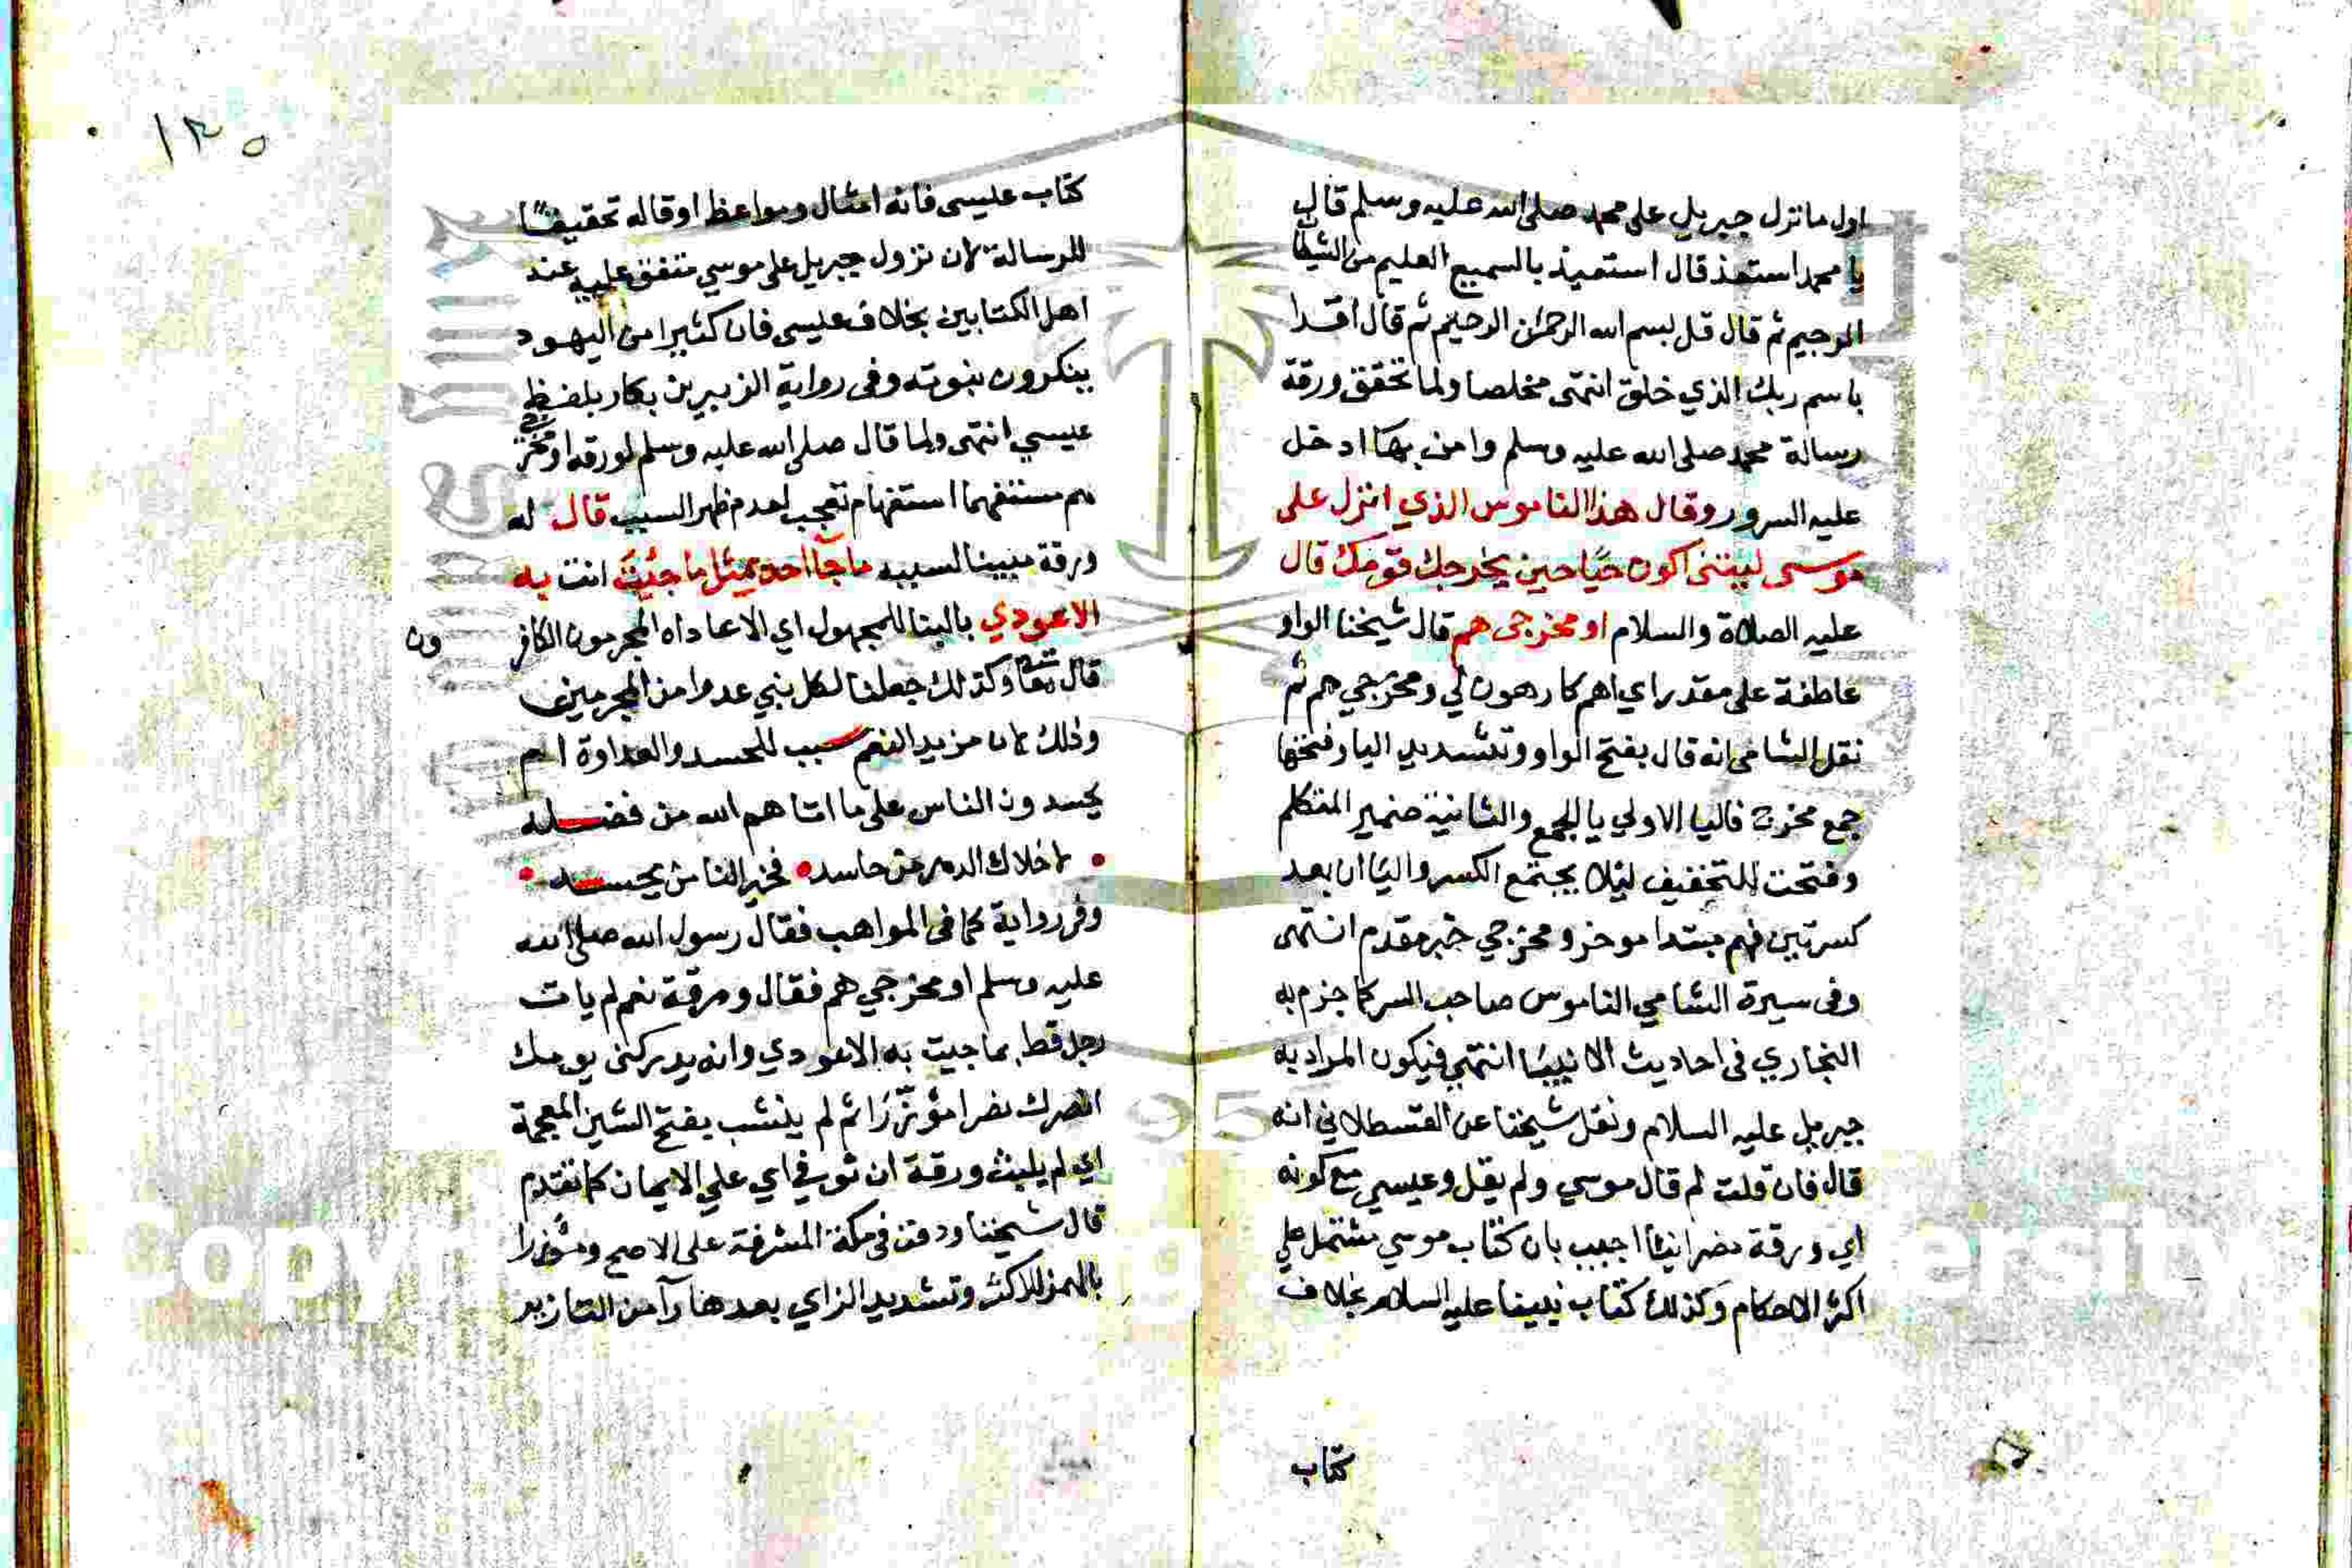 اول ما نزل جبريل على محمد صلى الله عليه وسلم قال
يا محمد استعذ قال استعيذ بالسميع العليم من الشيطان
الرجيم ثم قال قل بسم الله الرحمن الرحيم ثم قال اقرا
باسم ربك الذي خلق انتهى مخلصا ولما تحقق ورقة
رسالة محمد صلى الله عليه وسلم وامن بها ادخل
عليه السرور وقال هذا الناموس الذي انزل على
موسى ليتني اكون حيًا حين يخرجك قومك قال
عليه الصلاة والسلام او مخرجى هم قال شيخنا الواو
عاطفة على مقدر اي اهم كارهون لي ومخرجي هم ثم
نقل الشامى انه قال بفتح الواو وتشديد اليا وفتحها
جمع مخرج فاليا الاولي يا الجمع والثانية ضمير المتكلم
وفتحت للتخفيف ليلا يجتمع الكسر والياان بعد
كسرتين فهم مبتدا موخر ومخرجي خبر مقدم انتهى
وفى سيرة الشامي الناموس صاحب السر كما جزم به
البخاري فى احاديث الانبيا انتهى فيكون المراد به
جبريل عليه السلام ونقل شيخنا عن القسطلاني انه
قال فان قلت لم قال موسي ولم يقل وعيسي مع كونه
اي ورقة نصرانيا اجيب بان كتاب موسي مشتمل علي
اكثر الاحكام وكذلك كتاب نبينا عليه السلام بخلاف
كتاب
١٣٥
كتاب عيسى فانه امثال ومواعظ او قاله تحقيقًا
للرسالة لان نزول جبريل على موسي متفق عليه عند
اهل الكتابين بخلاف عيسى فان كثيرا من اليهود
ينكرون نبوته وفى رواية الزبير بن بكار بلفظ
عيسي انتهى ولما قال صلى الله عليه وسلم لورقه او مخرجي
هم مستفهما استفهام تعجب لعدم ظهر السبب قال له
ورقة مبينا لسببه ما جآ احد بمثل ما جئت انت به
الا عودي بالبنا للمجهول اي الا عاداه المجرمون الكافرون
قال تعا وكذلك جعلنا لكل نبي عدوا من المجرمين
وذلك لان مزيد النعم سبب للحسد والعداوة ام
يحسدون الناس على ما اتاهم الله من فضله
• لا خلاك الدهر من حاسد • فخير الناس من يحسد •
وفى رواية كما فى المواهب فقال رسول الله صلى الله
عليه وسلم او مخرجي هم فقال ورقة نعم لم يات
رجل قط بما جيت به الا عودي وان يدركنى يومك
انصرك نصرا مؤزّرًا ثم لم ينشب بفتح الشين المعجمة
اي لم يلبث ورقة ان توفي اي علي الايمان كما تقدم
قال شيخنا ودفن فى مكة المشرفة على الاصح ومؤزرا
بالهمز للاكثر وتشديد الزاي بعدها رآ من التازير